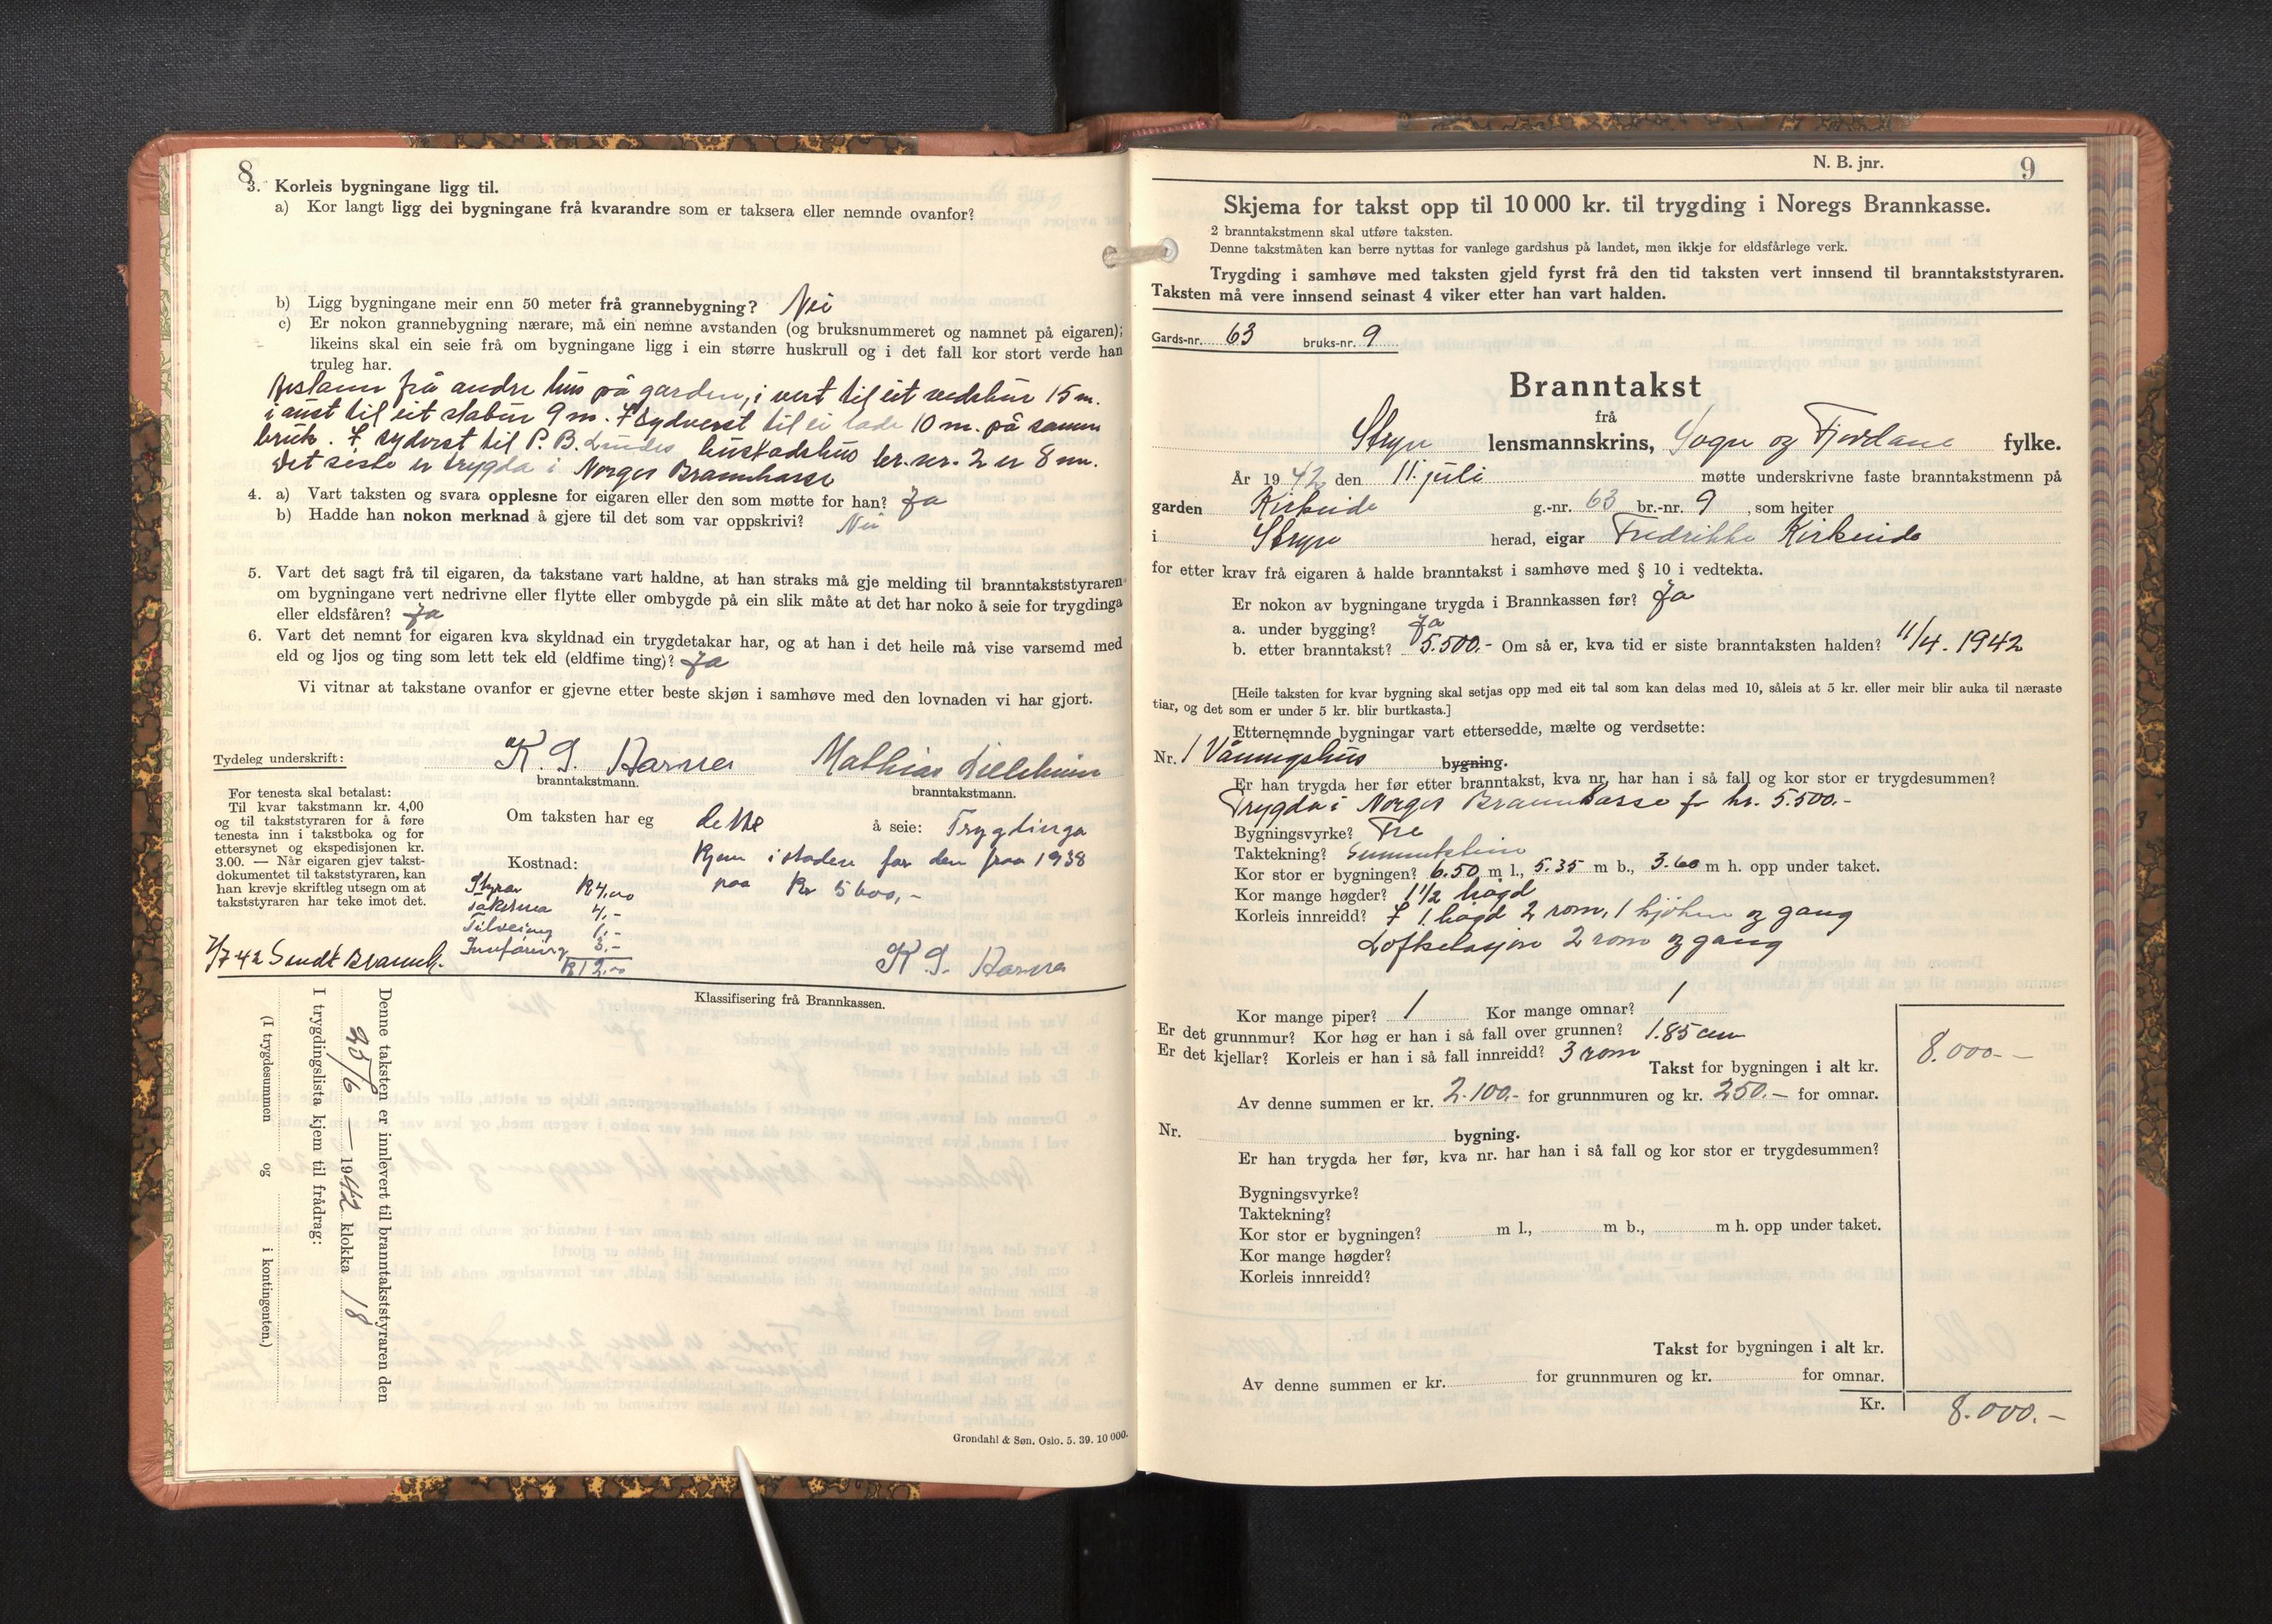 8
3. Korleis bygningane ligg til.
a) Kor langt ligg dei bygningane frå kvarandre som er taksera eller nemnde ovanfor?
b) Ligg bygningane meir enn 50 meter frå grannebygning? Nei
c) Er nokon grannebygning nærare, må ein nemne avstanden (og bruksnummeret og namnet på eigaren);
likeins skal ein seie frå om bygningane ligg i ein større huskrull og i det fall kor stort verde han
truleg har.
frå andre hus på garden, i vest til eit vedskur 15 m.
i aust til eit stabur 9 m. I sydvest til ei lade 10 m. på samme
bruk. I sydvest til P. B. hustadshus br.nr. 2 er 8 m.
Det siste er trygda i Norges Brannkasse
4. a) Vart taksten og svara opplesne for eigaren eller den som møtte for han? Ja
b) Hadde han nokon merknad å gjere til det som var oppskrivi? Nei
5. Vart det sagt frå til eigaren, da takstane vart haldne, at han straks må gje melding til branntakststyraren
om bygningane vert nedrivne eller flytte eller ombygde på ein slik måte at det har noko å seie for trygdinga
eller eldsfåren? Ja
6. Vart det nemnt for eigaren kva skyldnad ein trygdetakar har, og at han i det heile må vise varsemd med
eld og ljos og ting som lett tek eld (eldfime ting)? Ja
Vi vitnar at takstane ovanfor er gjevne etter beste skjøn i samhøve med den lovnaden vi har gjort.
Tydeleg underskrift: K. S. Mathias
branntakstmann. branntakstmann.
For tenesta skal betalast:
Til kvar takstmann kr. 4,00
og til takststyraren for å føre
tenesta inn i takstboka og for
ettersynet og ekspedisjonen kr.
3.00. — Når eigaren gjev takst-
dokumentet til takststyraren, kan
han krevje skriftleg utsegn om at
takststyraren har teke imot det.
Om taksten har eg dette å seie: Trygdinga
kjem istaden for den fraa 1938
paa Kr 5600,-
Kostnad:
Styrar K 4,00
4,-
1,-
Innføring 3,-
K 12,00
7/7 42 Sendt Brannk.
K. S.
Klassifisering frå Brannkassen.
Denne taksten er innlevert til branntakststyraren den
25/6 — 1942 klokka 18
I trygdingslista kjem til frådrag:
(I trygdesummen og i kontingenten.)
Grøndahl & Søn, Oslo. 5. 39. 10 000.
N. B. jnr. 9
Skjema for takst opp til 10 000 kr. til trygding i Noregs Brannkasse.
2 branntakstmenn skal utføre taksten.
Denne takstmåten kan berre nyttas for vanlege gardshus på landet, men ikkje for eldsfårlege verk.
Trygding i samhøve med taksten gjeld fyrst frå den tid taksten vert innsend til branntakststyraren.
Taksten må vere innsend seinast 4 viker etter han vart halden.
Gards-nr. 63 bruks-nr. 9
Branntakst
frå
Stryn lensmannskrins, Sogn og Fjordane fylke.
År 1942 den 11. juli møtte underskrivne faste branntakstmenn på
garden Kirkeide g.-nr. 63 br.-nr. 9, som heiter
i Stryn herad, eigar Fredrikke Kirkeide
for etter krav frå eigaren å halde branntakst i samhøve med § 10 i vedtekta.
Er nokon av bygningane trygda i Brannkassen før? Ja
a. under bygging? Ja
b. etter branntakst? 5.500.- Om så er, kva tid er siste branntaksten halden? 11/4. 1942
[Heile taksten for kvar bygning skal setjas opp med eit tal som kan delas med 10, såleis at 5 kr. eller meir blir auka til næraste
tiar, og det som er under 5 kr. blir burtkasta.]
Etternemnde bygningar vart ettersedde, mælte og verdsette:
Nr. 1 Våningshus bygning.
Er han trygda her før etter branntakst, kva nr, har han i så fall og kor stor er trygdesummen?
Trygda i Norges Brannkasse f kr. 5.500.-
Bygningsvyrke? Tre
Taktekning?
Kor stor er bygningen? 6.50 m l., 5.35 m b., 3.60 m h. opp under taket.
Kor mange høgder? 1 1/2 høgd
Korleis innreidd? I 1. høgd 2 rom, 1 kjøken og gang
Loftsetasjen 2 rom og gang
Kor mange piper? 1 Kor mange omnar? 1
Er det grunnmur? Kor høg er han i så fall over grunnen? 1.85 cm
Er det kjellar? Korleis er han i så fall innreidd? 3 rom
Takst for bygningen i alt kr. 8.000.-
Av denne summen er kr. 2.100.- for grunnmuren og kr. 250.- for omnar.
Nr. bygning.
Er han trygda her før, kva nr. har han i så fall og kor stor er trygdesummen?
Bygningsvyrke?
Taktekning?
Kor stor er bygningen? m l., m b., m h. opp under taket.
Kor mange høgder?
Korleis innreidd?
Takst for bygningen i alt kr.
Av denne summen er kr. for grunnmuren og kr. for omnar.
Kr. 8.000.-